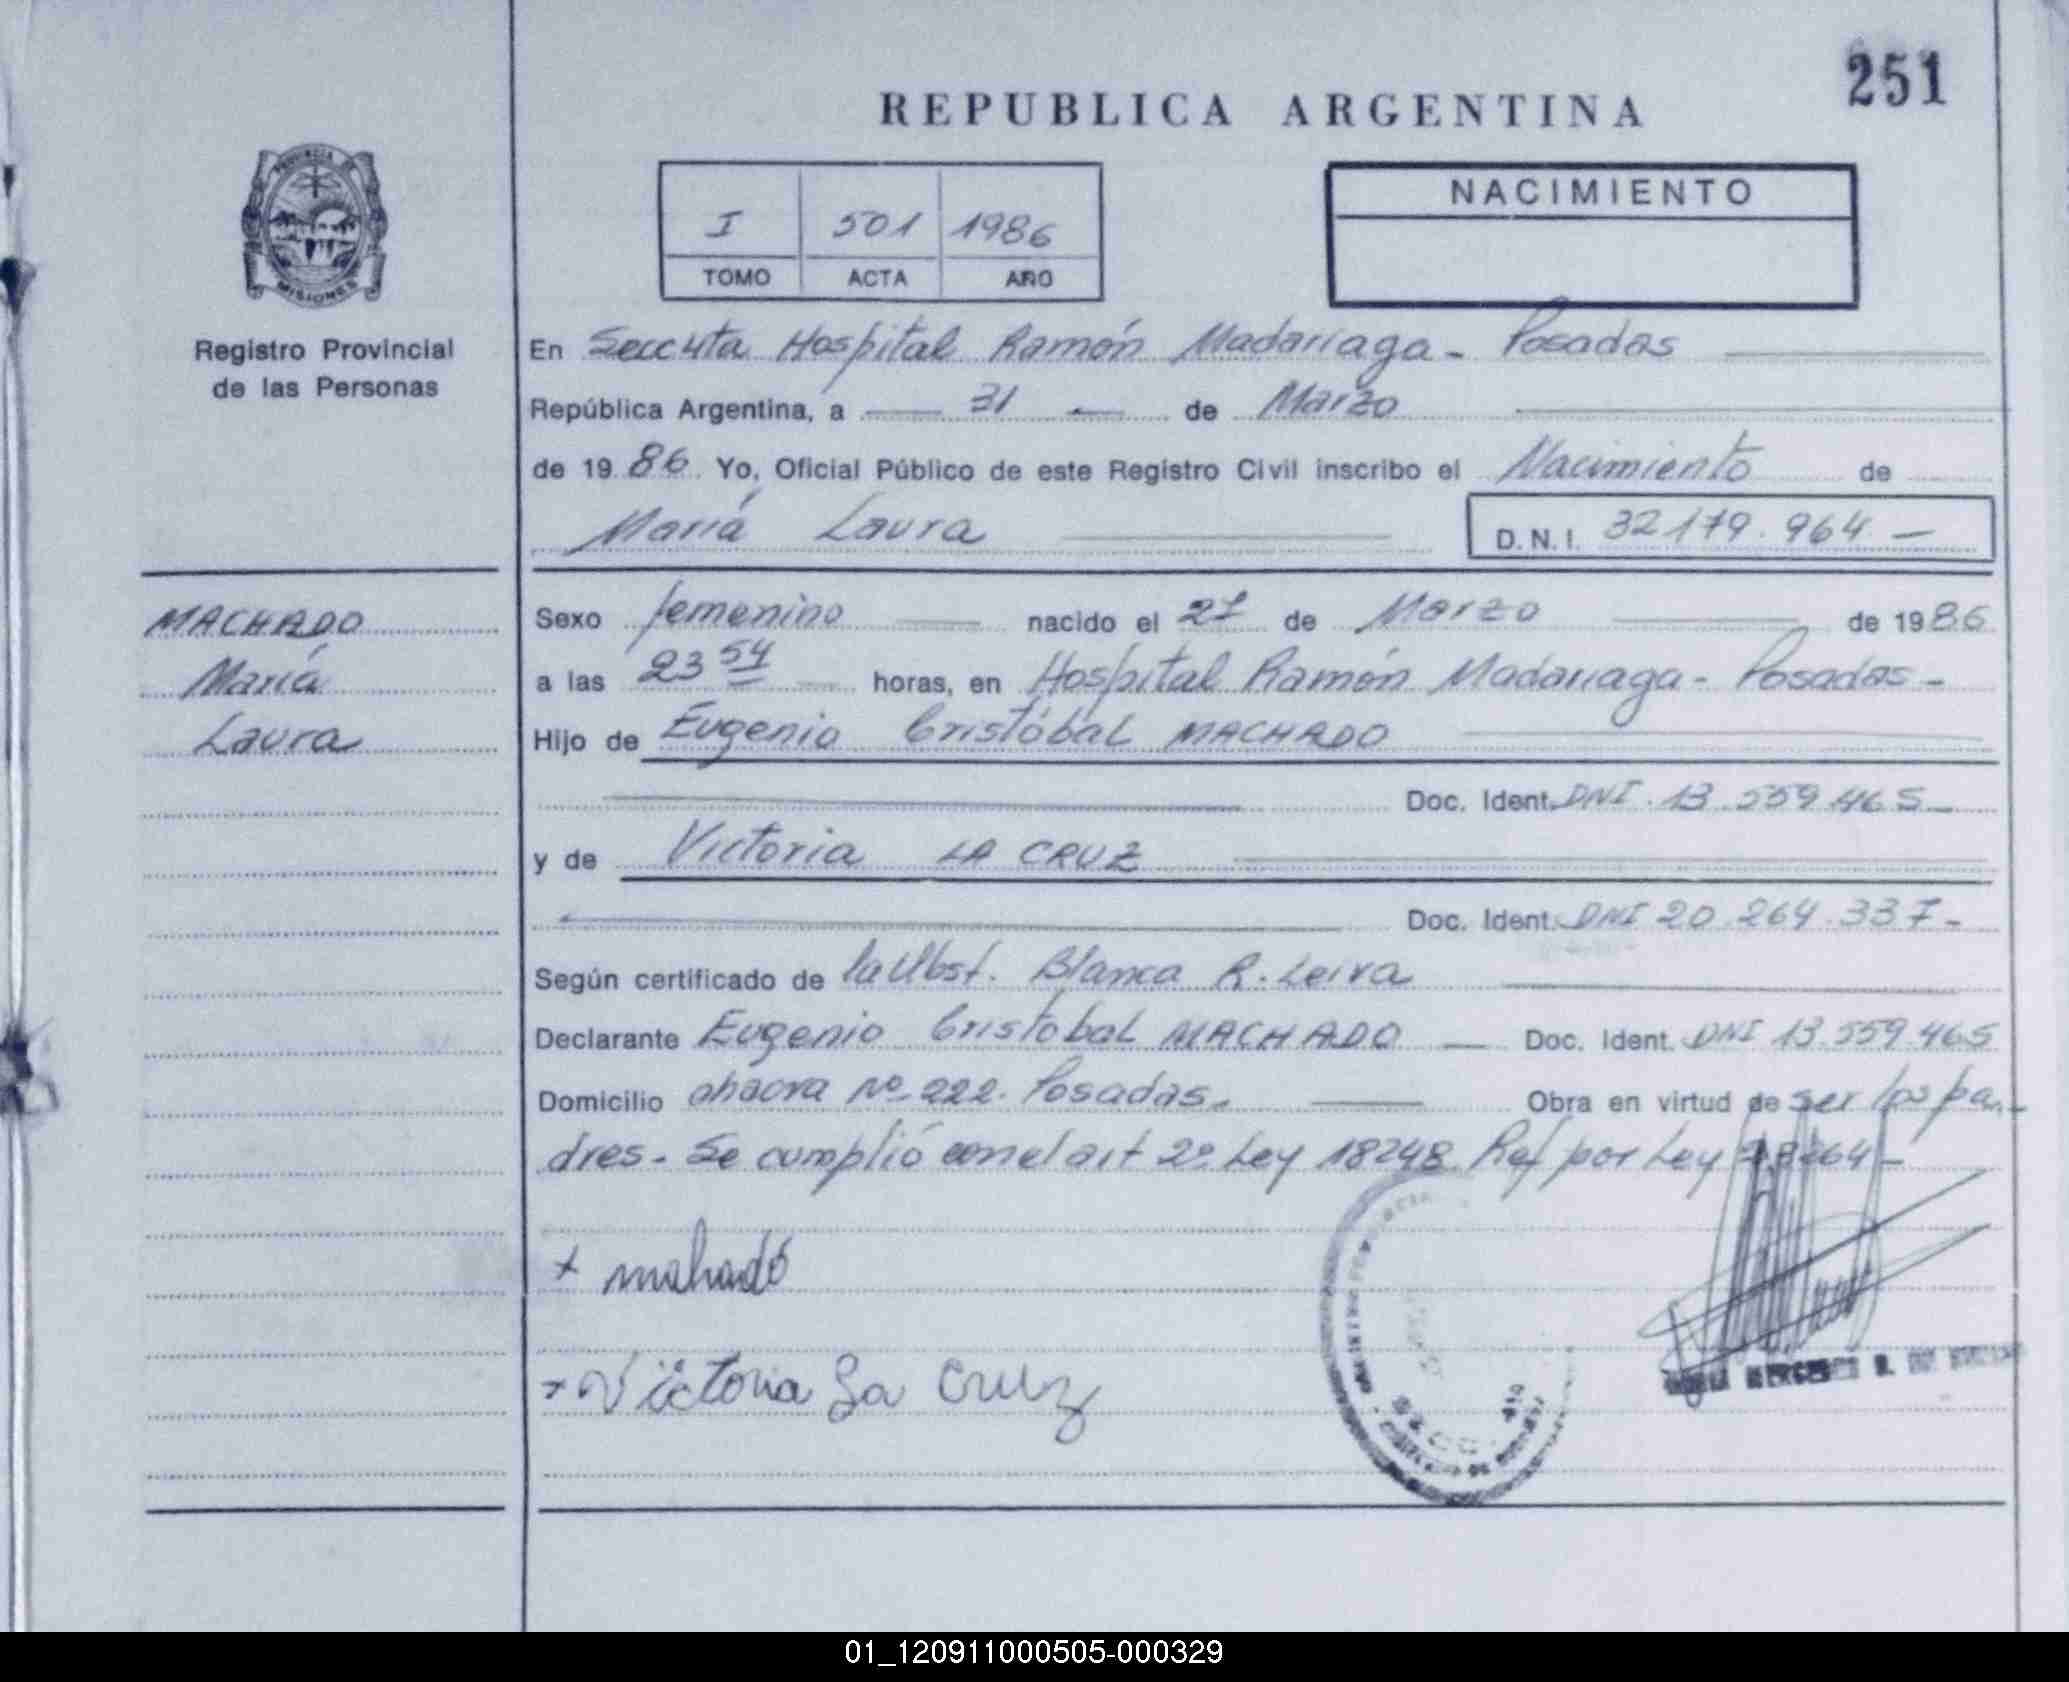 251
REPUBLICA ARGENTINA
PROVINCIA DE
MISIONES
Registro Provincial
de las Personas
I 501 1986
TOMO ACTA AÑO
NACIMIENTO
En Secc 4ta Hospital Ramón Madariaga - Posadas
República Argentina, a 31 de Marzo
de 19 86 Yo, Oficial Público de este Registro Civil inscribo el Nacimiento de
María Laura
D.N.I. 32179.964 -
MACHADO
María
Laura
Sexo femenino nacido el 27 de Marzo de 1986
a las 23 54 horas, en Hospital Ramón Madariaga - Posadas -
Hijo de Eugenio Cristóbal MACHADO
Doc. Ident. DNI 13.559.465 -
y de Victoria LA CRUZ
Doc. Ident. DNI 20.264.337 -
Según certificado de la Obst. Blanca R. Leiva
Declarante Eugenio Cristobal MACHADO — Doc. Ident. DNI 13.559.465
Domicilio chacra Nº 222. Posadas. Obra en virtud de ser los pa-
dres. Se cumplió con el art 2º Ley 18248 Ref por Ley
+ mahadó
+ Victoria La Cruz
01_120911000505-000329